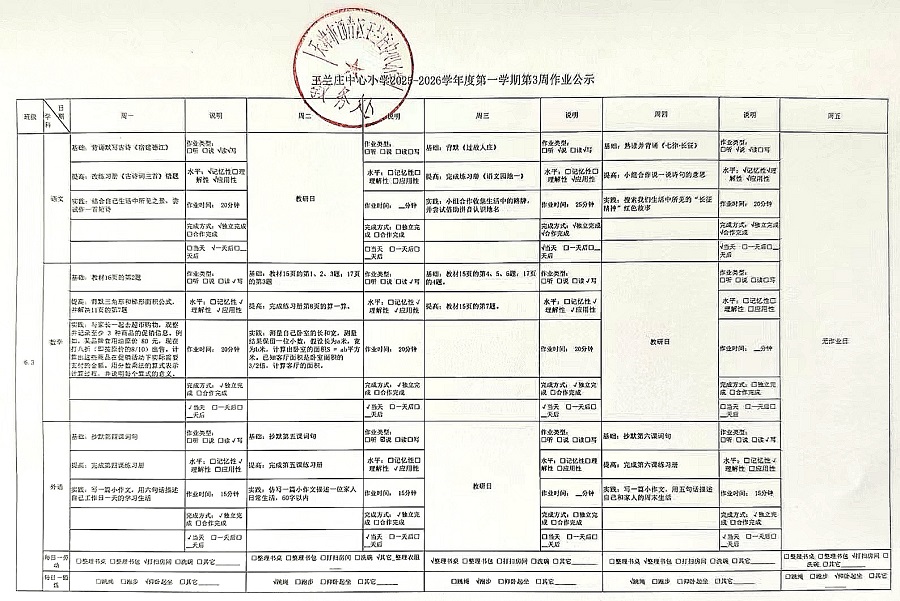 王兰庄中心小学2025-2026学年度第一学期第3周作业公示
班级 学科 日期 周一 说明 周二 说明 周三 说明 周四 说明 周五
6.3
语文
基础：背诵默写古诗《宿建德江》
作业类型：
□听 □说 √读√写
提高：改练习册《古诗词三首》错题
水平：√记忆性□理
解性 √应用性
实践：结合自己生活中所见之景，尝
试作一首短诗
作业时间： 20分钟
完成方式：√独立完成
□合作完成
□当天 √一天后□__
天后
教研日
作业类型：
□听 □说 □读□写
水平：□记忆性□
理解性 □应用性
作业时间： __分钟
完成方式：□独立完
成 □合作完成
□当天 □一天后□
__天后
基础：背默《过故人庄》
作业类型：
□听 √说 □读√写
提高：完成练习册《语文园地一》
水平：√记忆性□
理解性 √应用性
实践：小组合作收集生活中的路牌，
并尝试借助拼音认识地名
作业时间： 25分钟
完成方式：√独立完成
√合作完成
√当天 □一天后□__
天后
基础：熟读并背诵《七律·长征》
作业类型：
□听 √说 √读□写
提高：小组合作说一说诗句的意思
水平：√记忆性√
理解性 √应用性
实践：搜索我们生活中所见的“长征
精神”红色故事
作业时间： 20分钟
完成方式：√独立完成
√合作完成
√当天 □一天后□__
天后
无作业日
数学
基础：教材16页的第2题
作业类型：
□听 □说 □读 √写
提高：背默三角形和梯形面积公式，
并解决11页的第7题
水平：□记忆性 √
理解性 √应用性
实践：与家长一起去超市购物，观察
并记录至少 3 种商品的促销信息。例
80 元，现在
计算过程，并说明每个算式的意义。
作业时间： 20分钟
完成方式：√独立完
成 □合作完成
√当天 □一天后□
__天后
基础：教材15页的第1、2、3题；17页
的第3题
作业类型：
□听 □说 □读 √写
提高：完成练习册第8页的算一算。
水平：□记忆性 √
理解性 √应用性
实践：测量自己卧室的长和宽，测量
结果保留一位小数，假设长为a米，宽
为b米，计算出卧室的面积S = ab平方
米。已知客厅面积是卧室面积的
3/2倍，计算客厅的面积。
作业时间： 20分钟
完成方式：√独立完
成 □合作完成
√当天 □一天后□
__天后
基础：教材15页的第4、5、6题；17页
的4题。
作业类型：
□听 □说 □读 √写
提高：教材15页的第7题。
水平：□记忆性 √
理解性 √应用性
作业时间： 20分钟
完成方式：√独立完
成 □合作完成
√当天 □一天后□
__天后
教研日
作业类型：
□听 □说 □读□写
水平：□记忆性□
理解性 □应用性
作业时间： __分钟
完成方式：□独立完
成 □合作完成
□当天 □一天后□
__天后
外语
基础：抄默第四课词句
作业类型：
□听 □说 □读 √写
提高：完成第四课练习册
水平：√记忆性□理
解性 □应用性
实践：写一篇小作文，用六句话描述
自己工作日一天的学习生活
作业时间： 15分钟
完成方式：√独立完成
□合作完成
√当天 □一天后□
__天后
基础：抄默第五课词句
作业类型：
提高：完成第五课练习册
水平：□记忆性 √
理解性 √应用性
实践：仿写一篇小作文描述一位家人
日常生活，60字以内
作业时间： 15分钟
完成方式：√独立完
成 □合作完成
√当天 □一天后□
__天后
教研日
作业类型：
□听 □说 □读□写
水平：□记忆性□理
解性 □应用性
作业时间： __分钟
完成方式：□独立完成
□合作完成
□当天 □一天后□
__天后
基础：抄默第六课词句
作业类型：
□听 □说 □读 √写
提高：完成第六课练习册
水平：□记忆性√
理解性 □应用性
实践：写一篇小作文，用五句话描述
自己和家人的周末生活
作业时间： 15分钟
完成方式：√独立完
成 □合作完成
√当天 □一天后□
__天后
每日一劳
动
□整理书桌 □整理书包 √打扫房间 □洗碗 □其它____
□整理书桌 □整理书包 □打扫房间 □洗碗 √其它_整理衣服
√整理书桌 □整理书包 □打扫房间 □洗碗 □其它____
□整理书桌 √整理书包 □打扫房间 □洗碗 □其它____
□整理书桌 □整理书包 √打扫房间 □
洗碗 □其它____
每日一锻
炼
□跳绳 □跑步 √仰卧起坐 □其它____
□跳绳 √跑步 □仰卧起坐 □其它____
√跳绳 □跑步 □仰卧起坐 □其它____
□跳绳 □跑步 √仰卧起坐 □其它